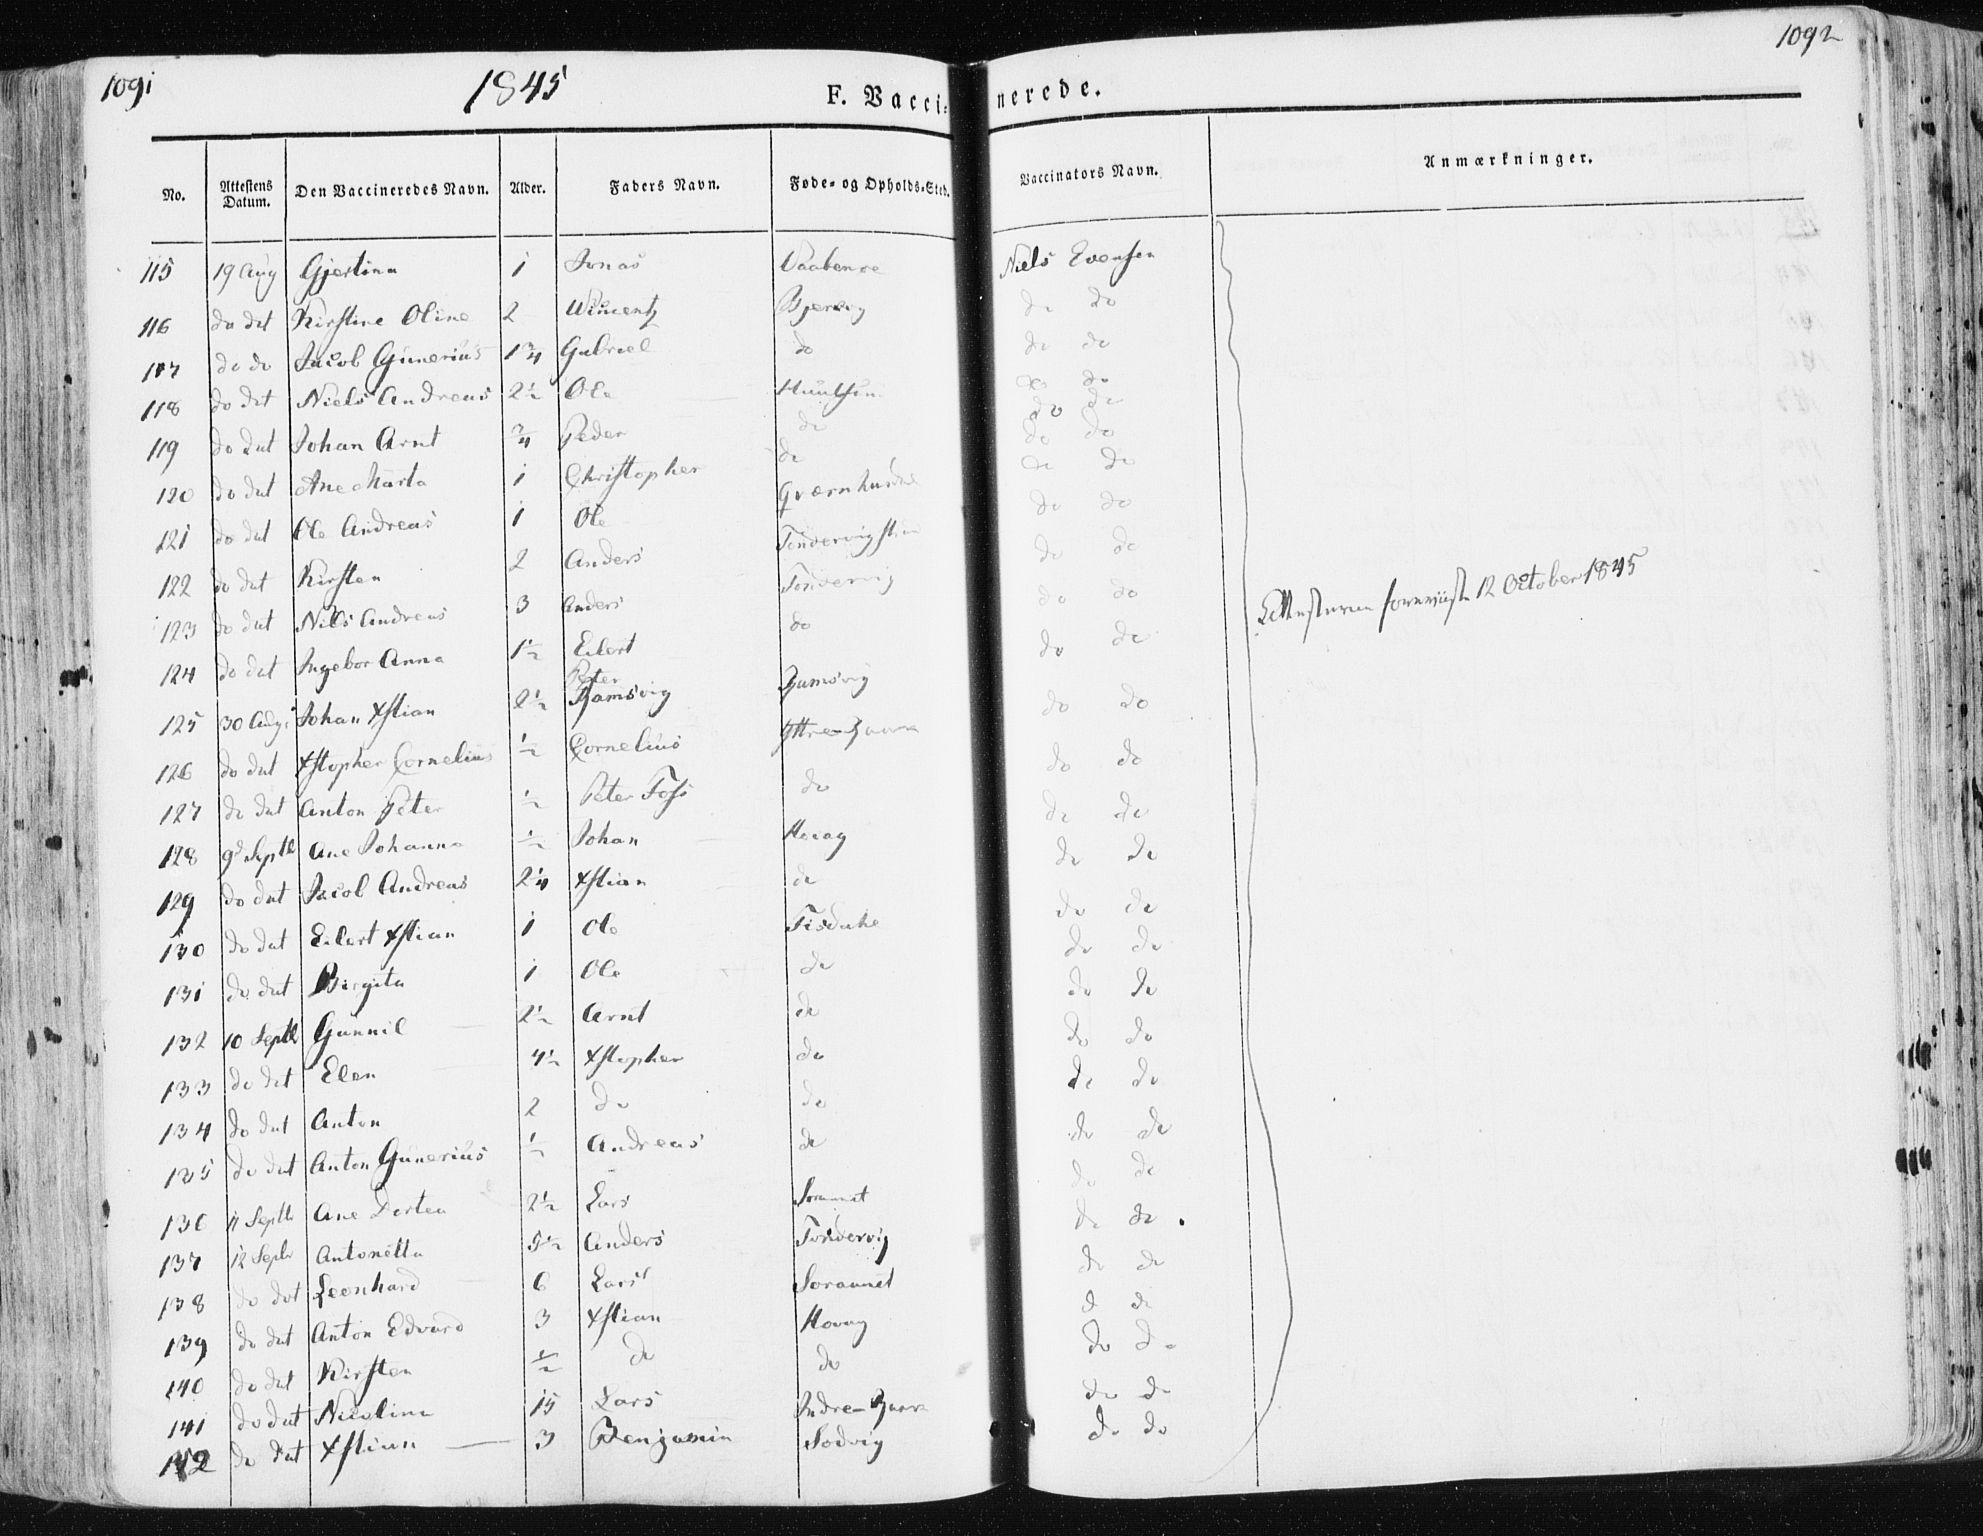 1091
1845
F. Vaccinerede.
1092
No. Attestens Datum. Den Vaccineredes Navn. Alder. Faders Navn. Føde- og Opholds-Sted. Vaccinators Navn. Anmærkninger.
115 19 Aug Gjertina 1 Jonas Niels Evensen
116 do dat Kirstine Oline 2 Wincentz Bjervig do do
117 do do Jacob Gunerius 1 3/4 Gabriel do do do
118 do dat Niels Andreas 2 1/2 Ole do do
119 do dat Johan Arnt 3/4 Peder do do do
120 do dat Ane Marta 1 Christopher do do do
121 do dat Ole Andreas 1 Ole do do
122 do dat Kirsten 2 Anders do do
123 do dat Nils Andreas 3 Anders Tondervig do do
124 do dat Ingebor Anna 1 1/2 Eilert do do do
125 30 Aug Johan Xstian 2 1/2 Peter Ramsvig Ramsvig do do
126 do dat Xstopher Cornelius 1/2 Cornelius do do
127 do dat Anton Peter 1/2 Peter Foss do do do
128 9d Septb Ane Johanna 1/2 Johan Hovag do do
129 do dat Jacob Andreas 2 1/4 Xstian do do do
130 do dat Eilert Xstian 1 Ole do do
131 do dat Birgita 1 Ole do do do
132 10 Septb Gunnil 2 1/2 Arnt do do do
133 do dat Elen 4 1/2 Xstopher do do do
134 do dat Anton 2 do do do do
135 do dat Anton Gunerius 1/2 Andreas do do do
136 11 Septb Ane Dortea 2 1/2 Lars do do
137 12 Septb Antonetta 5 1/2 Anders Tondervig do do
138 do dat Leonhard 6 Lars Soraunet do do
139 do dat Anton Edvard 3 Xstian Hovag do do
140 do dat Kirsten 1/2 do do do do
141 do dat Nicolina 15 Lars Indre- do do
142 do dat Xstian 3 Benjamin Sodvig do do
12 October 1845